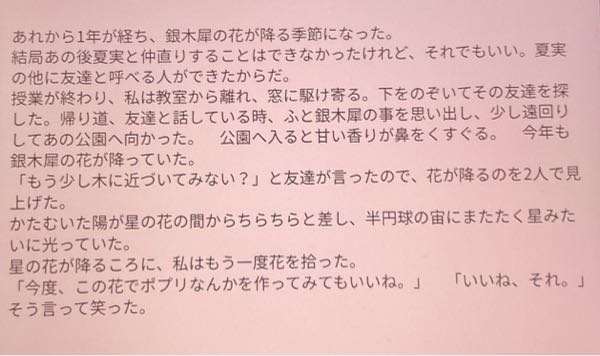 あれから1年が経ち、銀木犀の花が降る季節になった。
結局あの後夏実と仲直りすることはできなかったけれど、それでもいい。夏実
の他に友達と呼べる人ができたからだ。
授業が終わり、私は教室から離れ、窓に駆け寄る。下をのぞいてその友達を探
した。帰り道、友達と話している時、ふと銀木犀の事を思い出し、少し遠回り
してあの公園へ向かった。　公園へ入ると甘い香りが鼻をくすぐる。　今年も
銀木犀の花が降っていた。
「もう少し木に近づいてみない？」と友達が言ったので、花が降るのを2人で見
上げた。
かたむいた陽が星の花の間からちらちらと差し、半円球の宙にまたたく星みた
いに光っていた。
星の花が降るころに、私はもう一度花を拾った。
「今度、この花でポプリなんかを作ってみてもいいね。」　「いいね、それ。」
そう言って笑った。